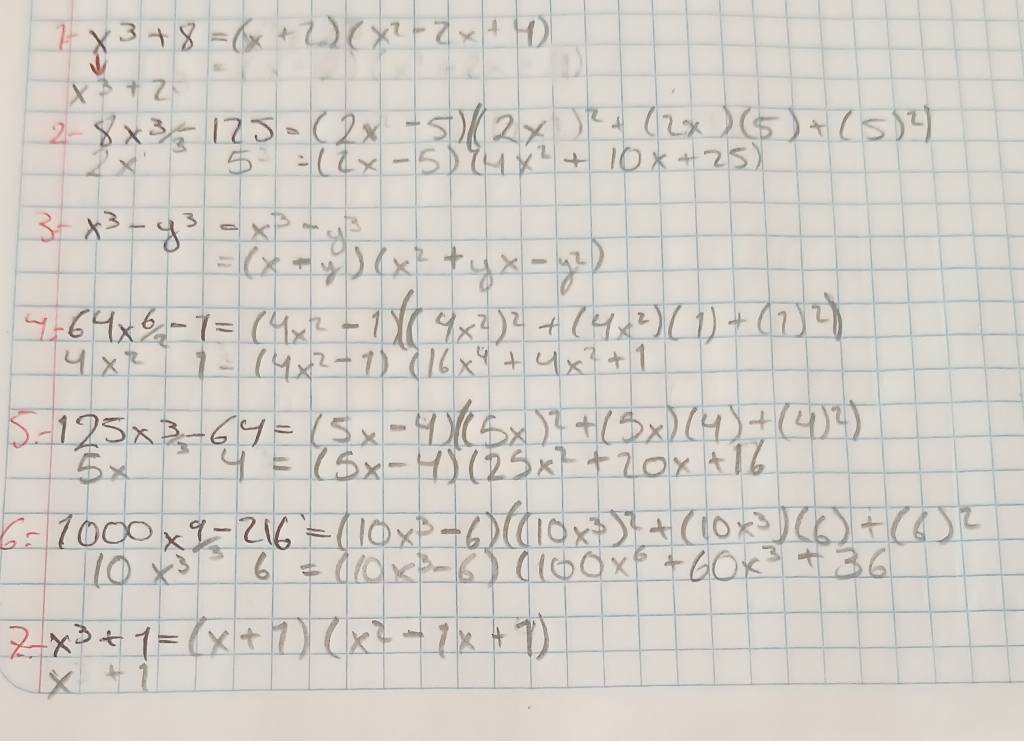 1- x³ + 8 = (x + 2) (x² - 2x + 4)
x³ + 2
2- 8x³/₃ - 125 = (2x - 5)((2x )² + (2x )(5) + (5)²)
2x 5 = (2x - 5) (4x² + 10x + 25)
3- x³ - y³ = x³ - y³
= (x - y) (x² + yx - y²)
4- 64x⁶/₂ - 1 = (4x² - 1)((4x²)² + (4x²)(1) + (1)²)
4x² 1 = (4x² - 1) (16x⁴ + 4x² + 1
5- 125x³/₃ - 64 = (5x - 4)((5x)² + (5x)(4) + (4)²)
5x 4 = (5x - 4) (25x² + 20x + 16
6- 1000x⁹/₃ - 216 = (10x³ - 6) ((10x³)² + (10x³)(6) + (6)²
10x³ 6 = (10x³ - 6) (100x⁶ + 60x³ + 36
7- x³ + 1 = (x + 1) (x² - 1x + 1)
x + 1